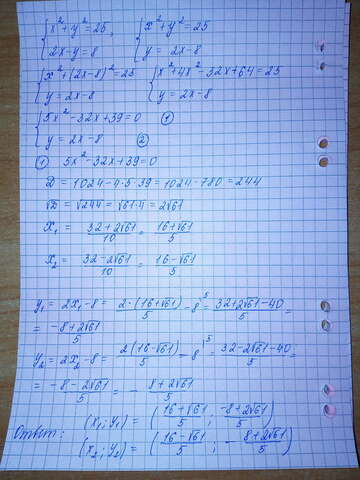 { x² + y² = 25, { x² + y² = 25
{ 2x - y = 8 { y = 2x - 8
{ x² + (2x - 8)² = 25 { x² + 4x² - 32x + 64 = 25
{ y = 2x - 8 { y = 2x - 8
{ 5x² - 32x + 39 = 0 ①
{ y = 2x - 8 ②
① 5x² - 32x + 39 = 0
D = 1024 - 4·5·39 = 1024 - 780 = 244
√D = √244 = √61·4 = 2√61
x₁ = (32 + 2√61)/10 = (16 + √61)/5
x₂ = (32 - 2√61)/10 = (16 - √61)/5
y₁ = 2x₁ - 8 = 2·(16 + √61)/5 - 8 ⁵ = (32 + 2√61 - 40)/5 =
= (-8 + 2√61)/5
y₂ = 2x₂ - 8 = 2(16 - √61)/5 - 8 ⁵ = (32 - 2√61 - 40)/5 =
= (-8 - 2√61)/5 = - (8 + 2√61)/5
Ответ: (x₁; y₁) = ((16 + √61)/5 ; (-8 + 2√61)/5)
(x₂; y₂) = ((16 - √61)/5 ; - (8 + 2√61)/5)